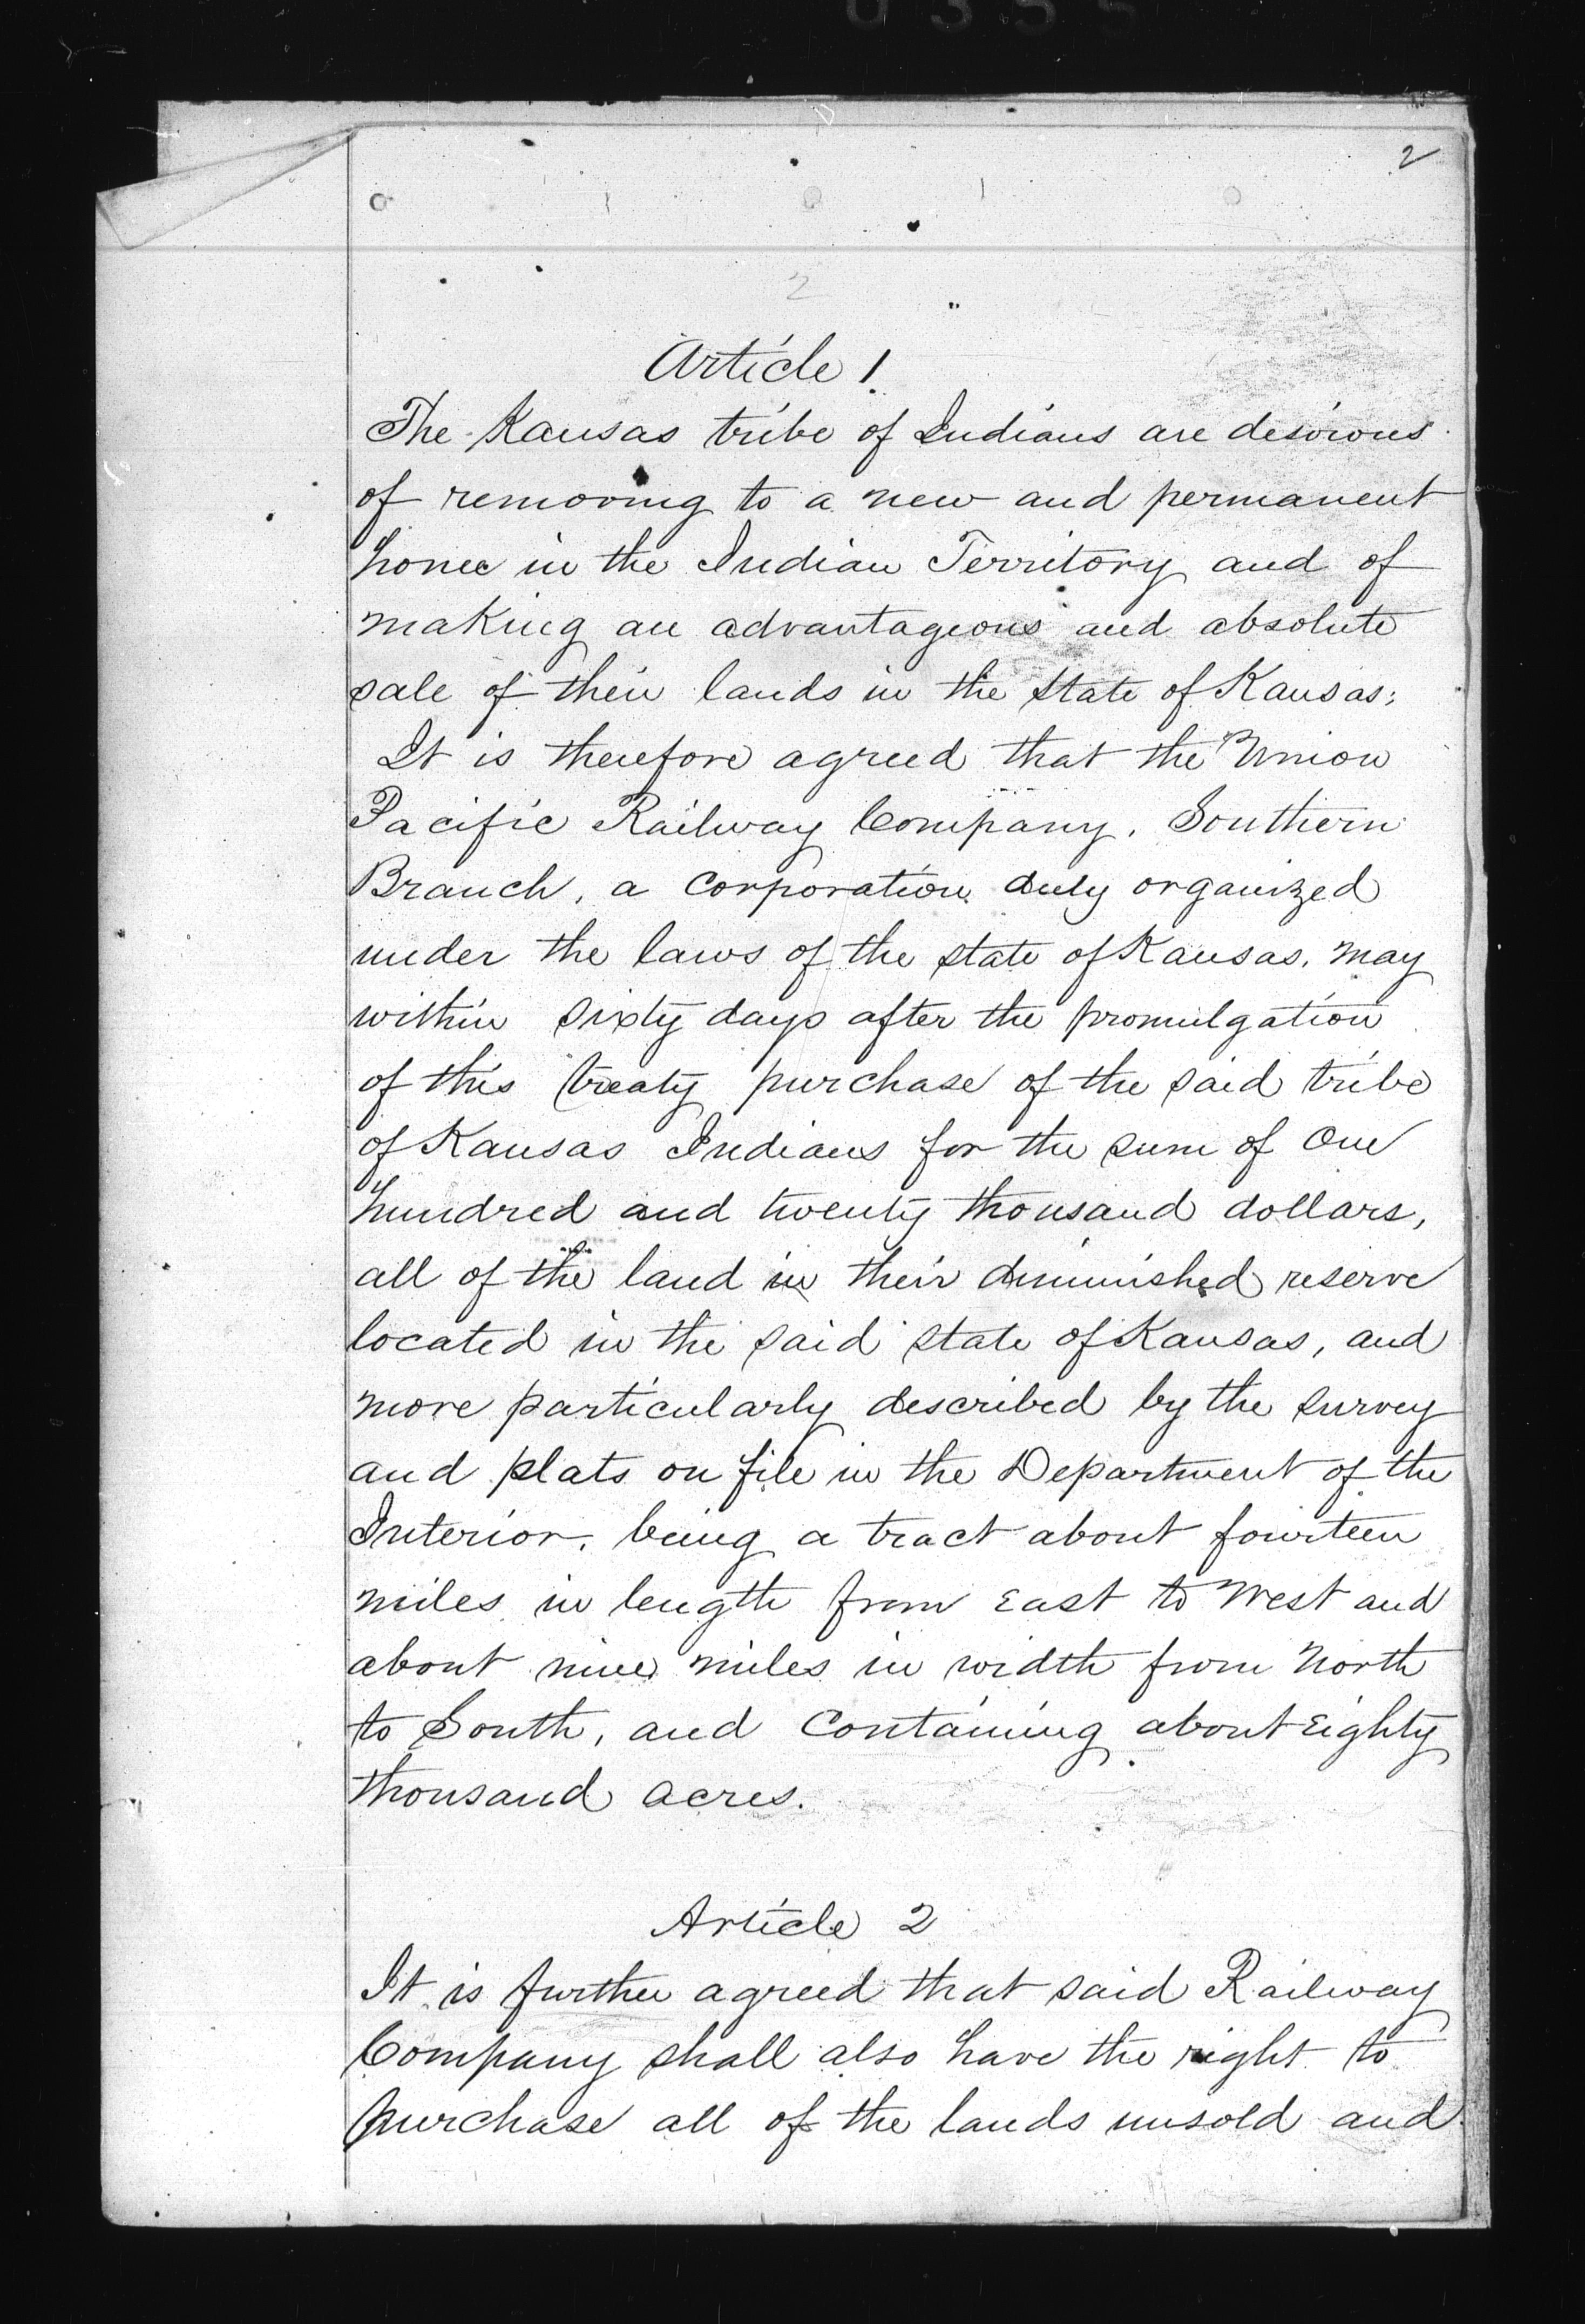 2
2
Article 1.
The Kansas tribe of Indians are desirous
of removing to a new and permanent
home in the Indian Territory and of
making an advantageous and absolute
sale of their lands in the state of Kansas;
It is therefore agreed that the Union
Pacific Railway Company, Southern
Branch, a corporation duly organized
under the laws of the state of Kansas, may
within sixty days after the promulgation
of this treaty purchase of the said tribe
of Kansas Indians for the sum of One
hundred and twenty thousand dollars,
all of the land in their diminished reserve
located in the said state of Kansas, and
more particularly described by the survey
and plats on file in the Department of the
Interior, being a tract about fourteen
miles in length from East to West and
about nine miles in width from North
to South, and Containing about Eighty
thousand acres.
Article 2
It is further agreed that said Railway
Company shall also have the right to
purchase all of the lands unsold and